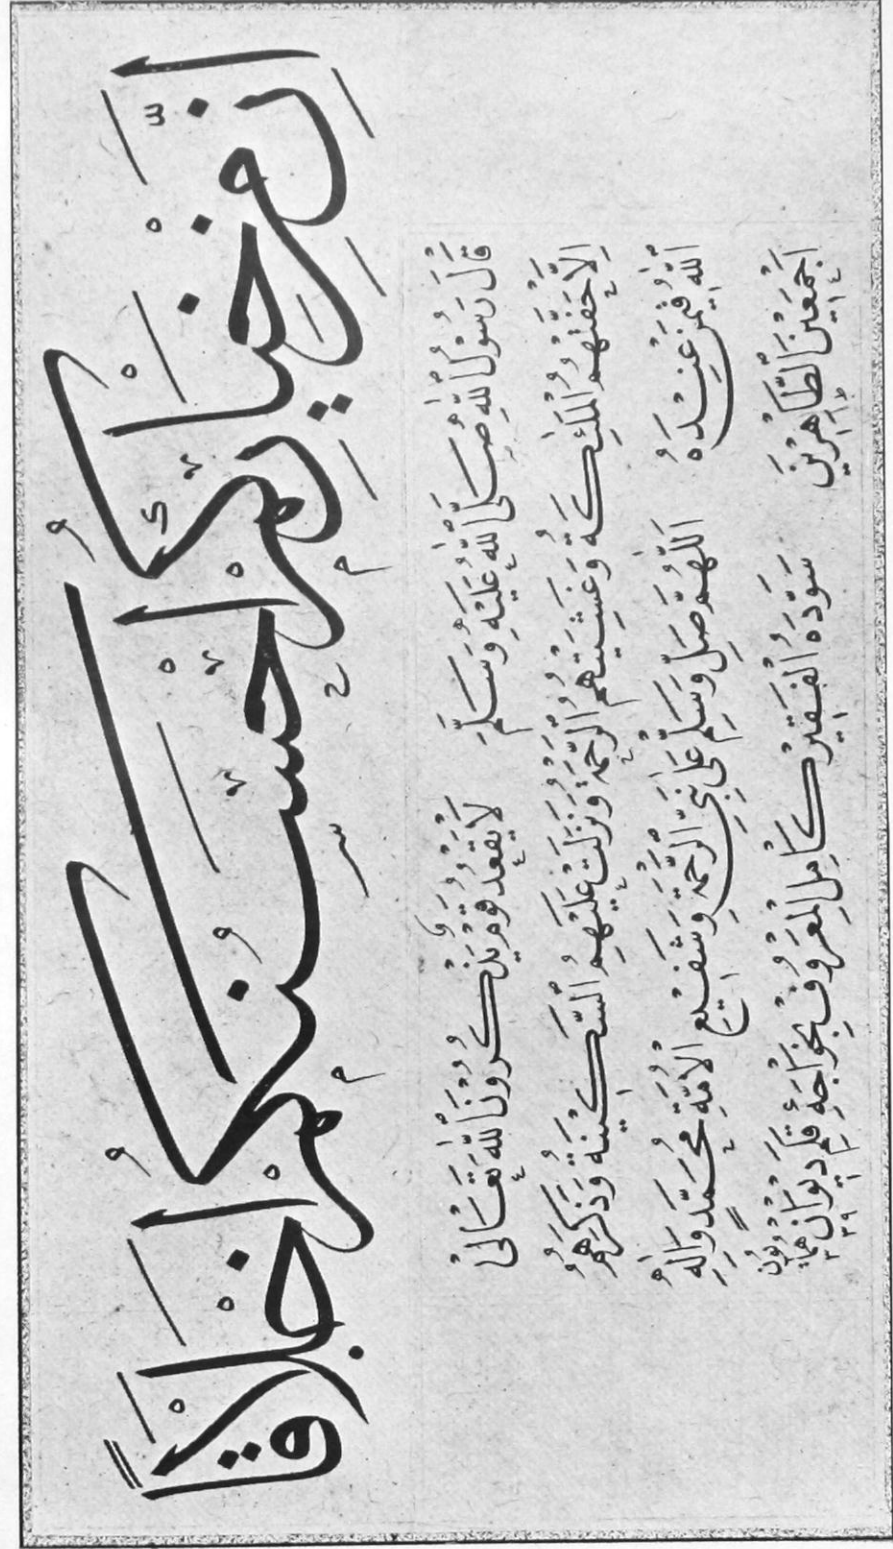 اِنَّ مِنْ خِيَارِكُمْ اَحْسَنَكُمْ اَخْلَاقًا
قَالَ رَسُوْلُ اللهِ صَلَّى اللهُ عَلَيْهِ وَسَلَّمَ لَا يَقْعُدُ قَوْمٌ يَذْكُرُوْنَ اللهَ تَعَالٰى
اِلَّا حَفَّتْهُمُ الْمَلٰئِكَةُ وَغَشِيَتْهُمُ الرَّحْمَةُ وَنَزَلَتْ عَلَيْهِمُ السَّكِيْنَةُ وَذَكَرَهُمُ
اللهُ فِيْمَنْ عِنْدَهُ اَللّٰهُمَّ صَلِّ وَسَلِّمْ عَلٰى نَبِيِّ الرَّحْمَةِ وَشَفِيْعِ الْاُمَّةِ مُحَمَّدٍ وَاٰلِهِ
اَجْمَعِيْنَ الطَّاهِرِيْنَ سَوَّدَهُ الْفَقِيْرُ كَامِلُ الْمَعْرُوْفُ بِخَوَاجَهِٔ قَلَمِ دِيْوَانِ هُمَايُوْن ١٣٣٩